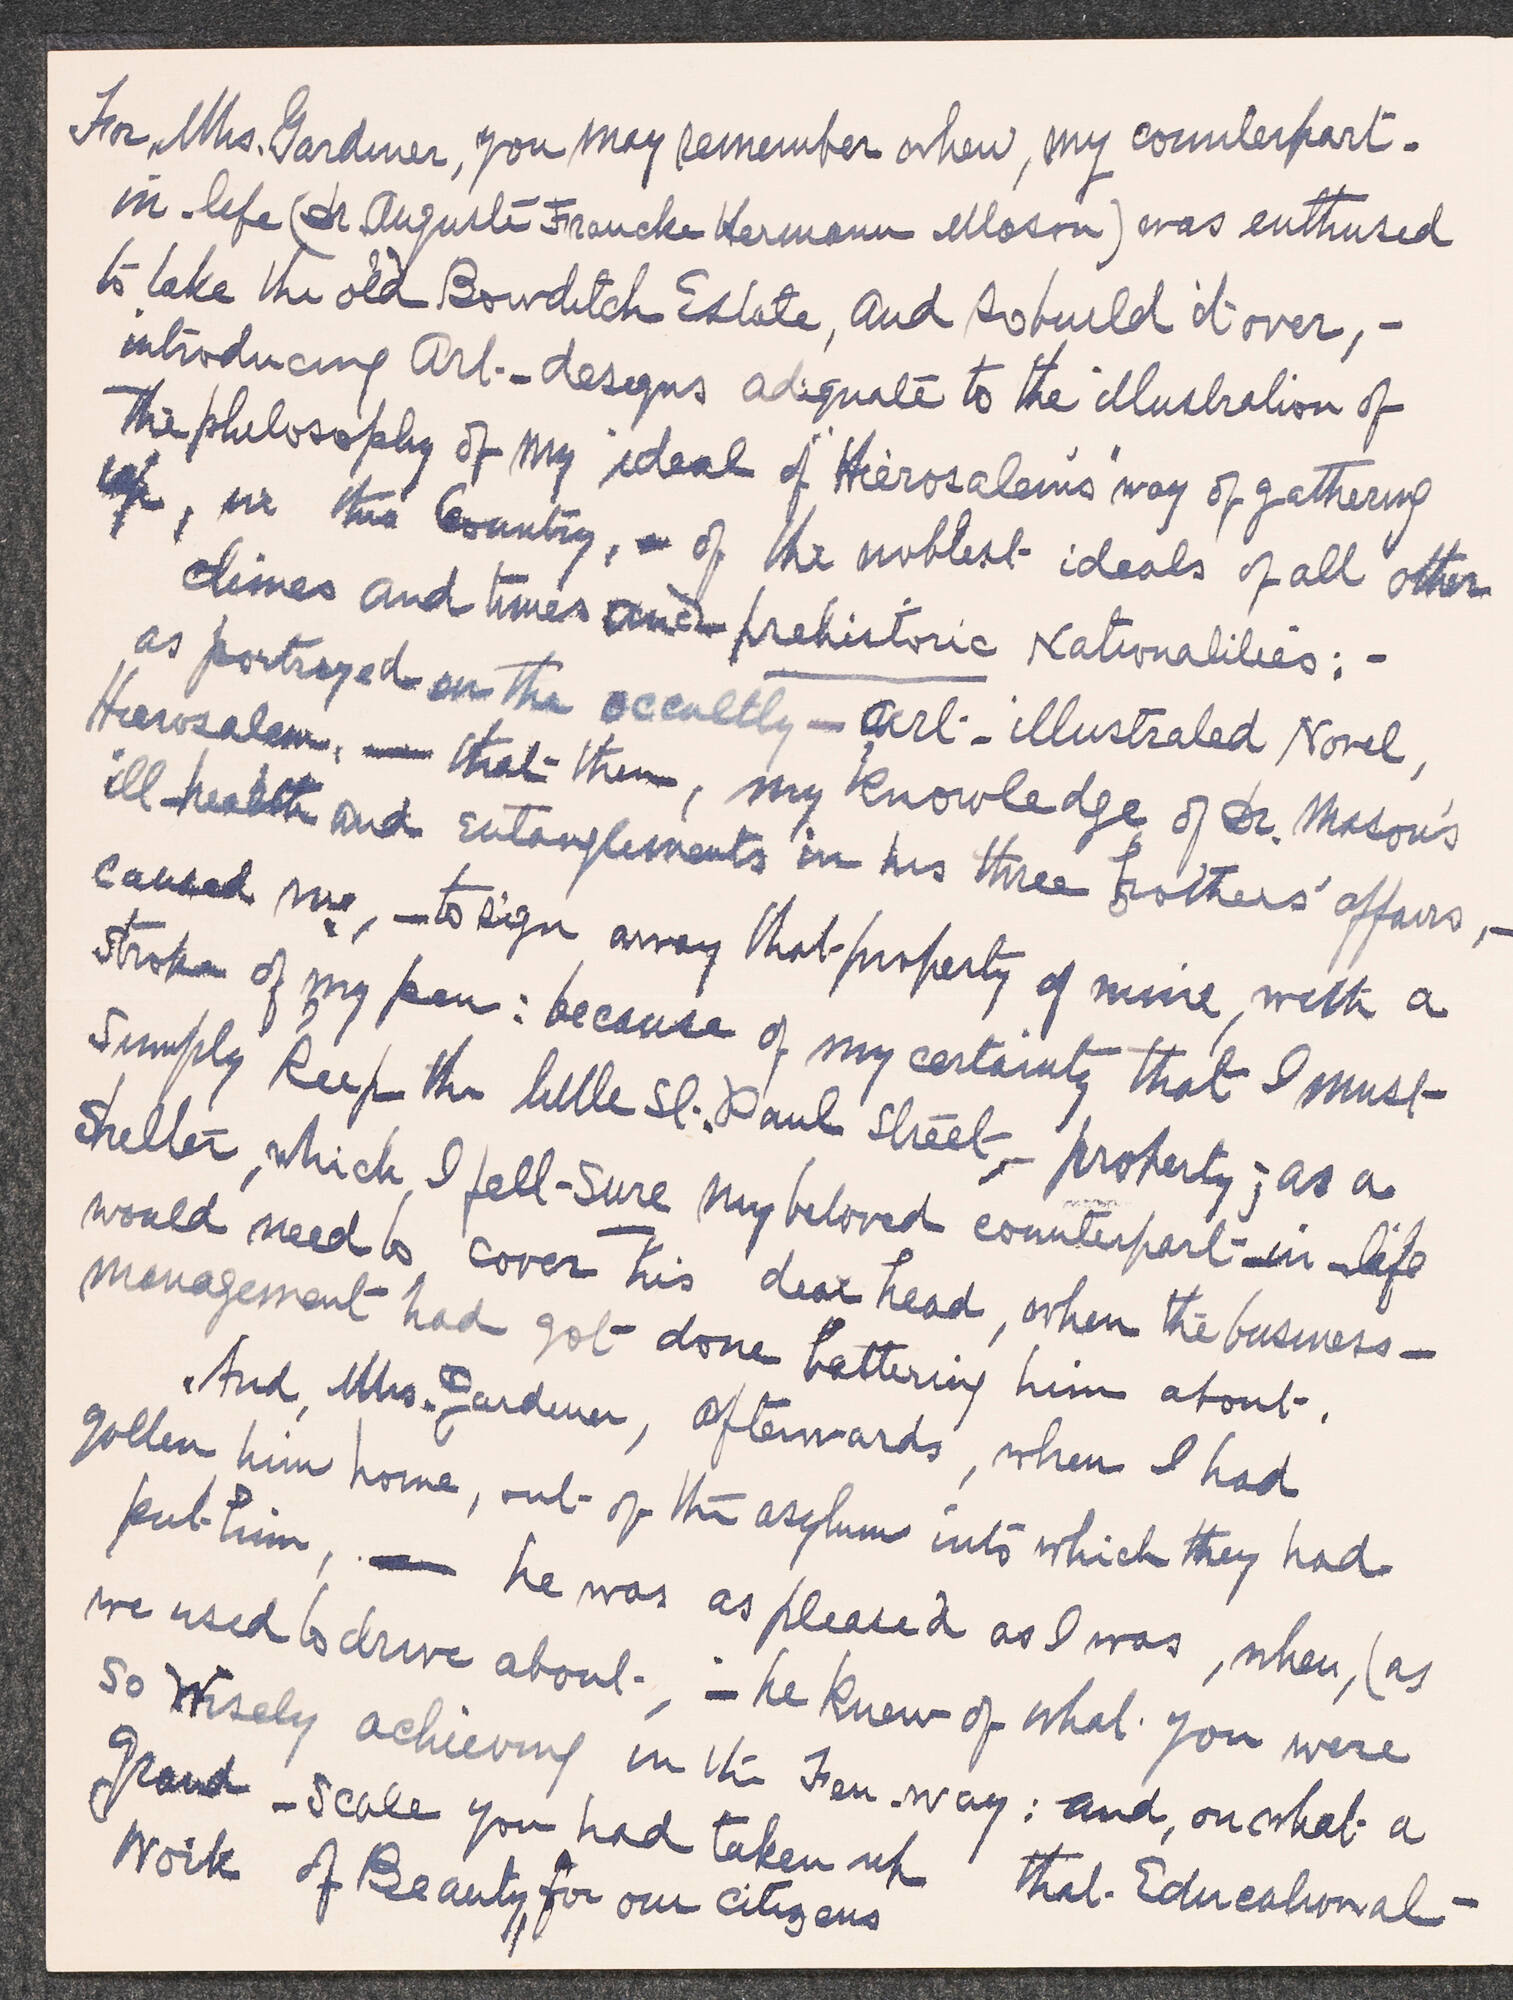 For, Mrs. Gardiner, you may remember when, my counterpart-
in-life (Dr. Auguste Francke Hermann Mason) was enthused
to take the old Bowditch Estate, and so build it over,-
introducing Art-designs adequate to the illustration of
the philosophy of my ideal of "Hierosalem's" way of gathering
up, in this Country, - of the noblest ideals of all other
climes and times and prehistoric Nationalities; -
as portrayed in the occultly - Art-illustrated Novel,
Hierosalem. — that then, my knowledge of Dr. Mason's
ill health and entanglements in his three brothers' affairs, -
caused me, - to sign away that property of mine, with a
stroke of my pen: because of my certainty that I must
simply keep the little St. Paul Street,- property; as a
shelter, which, I felt-sure my beloved counterpart-in-life
would need to cover his dear head, when the business-
management had got done battering him about.
And, Mrs. Gardener, afterwards, when I had
gotten him home, out of the asylum into which they had
put him, — he was as pleased as I was, when, (as
we used to drive about, - he knew of what you were
so wisely achieving in the Fen-way: and, on what a
Grand-scale you had taken up that Educational-
Work of Beauty, for our citizens